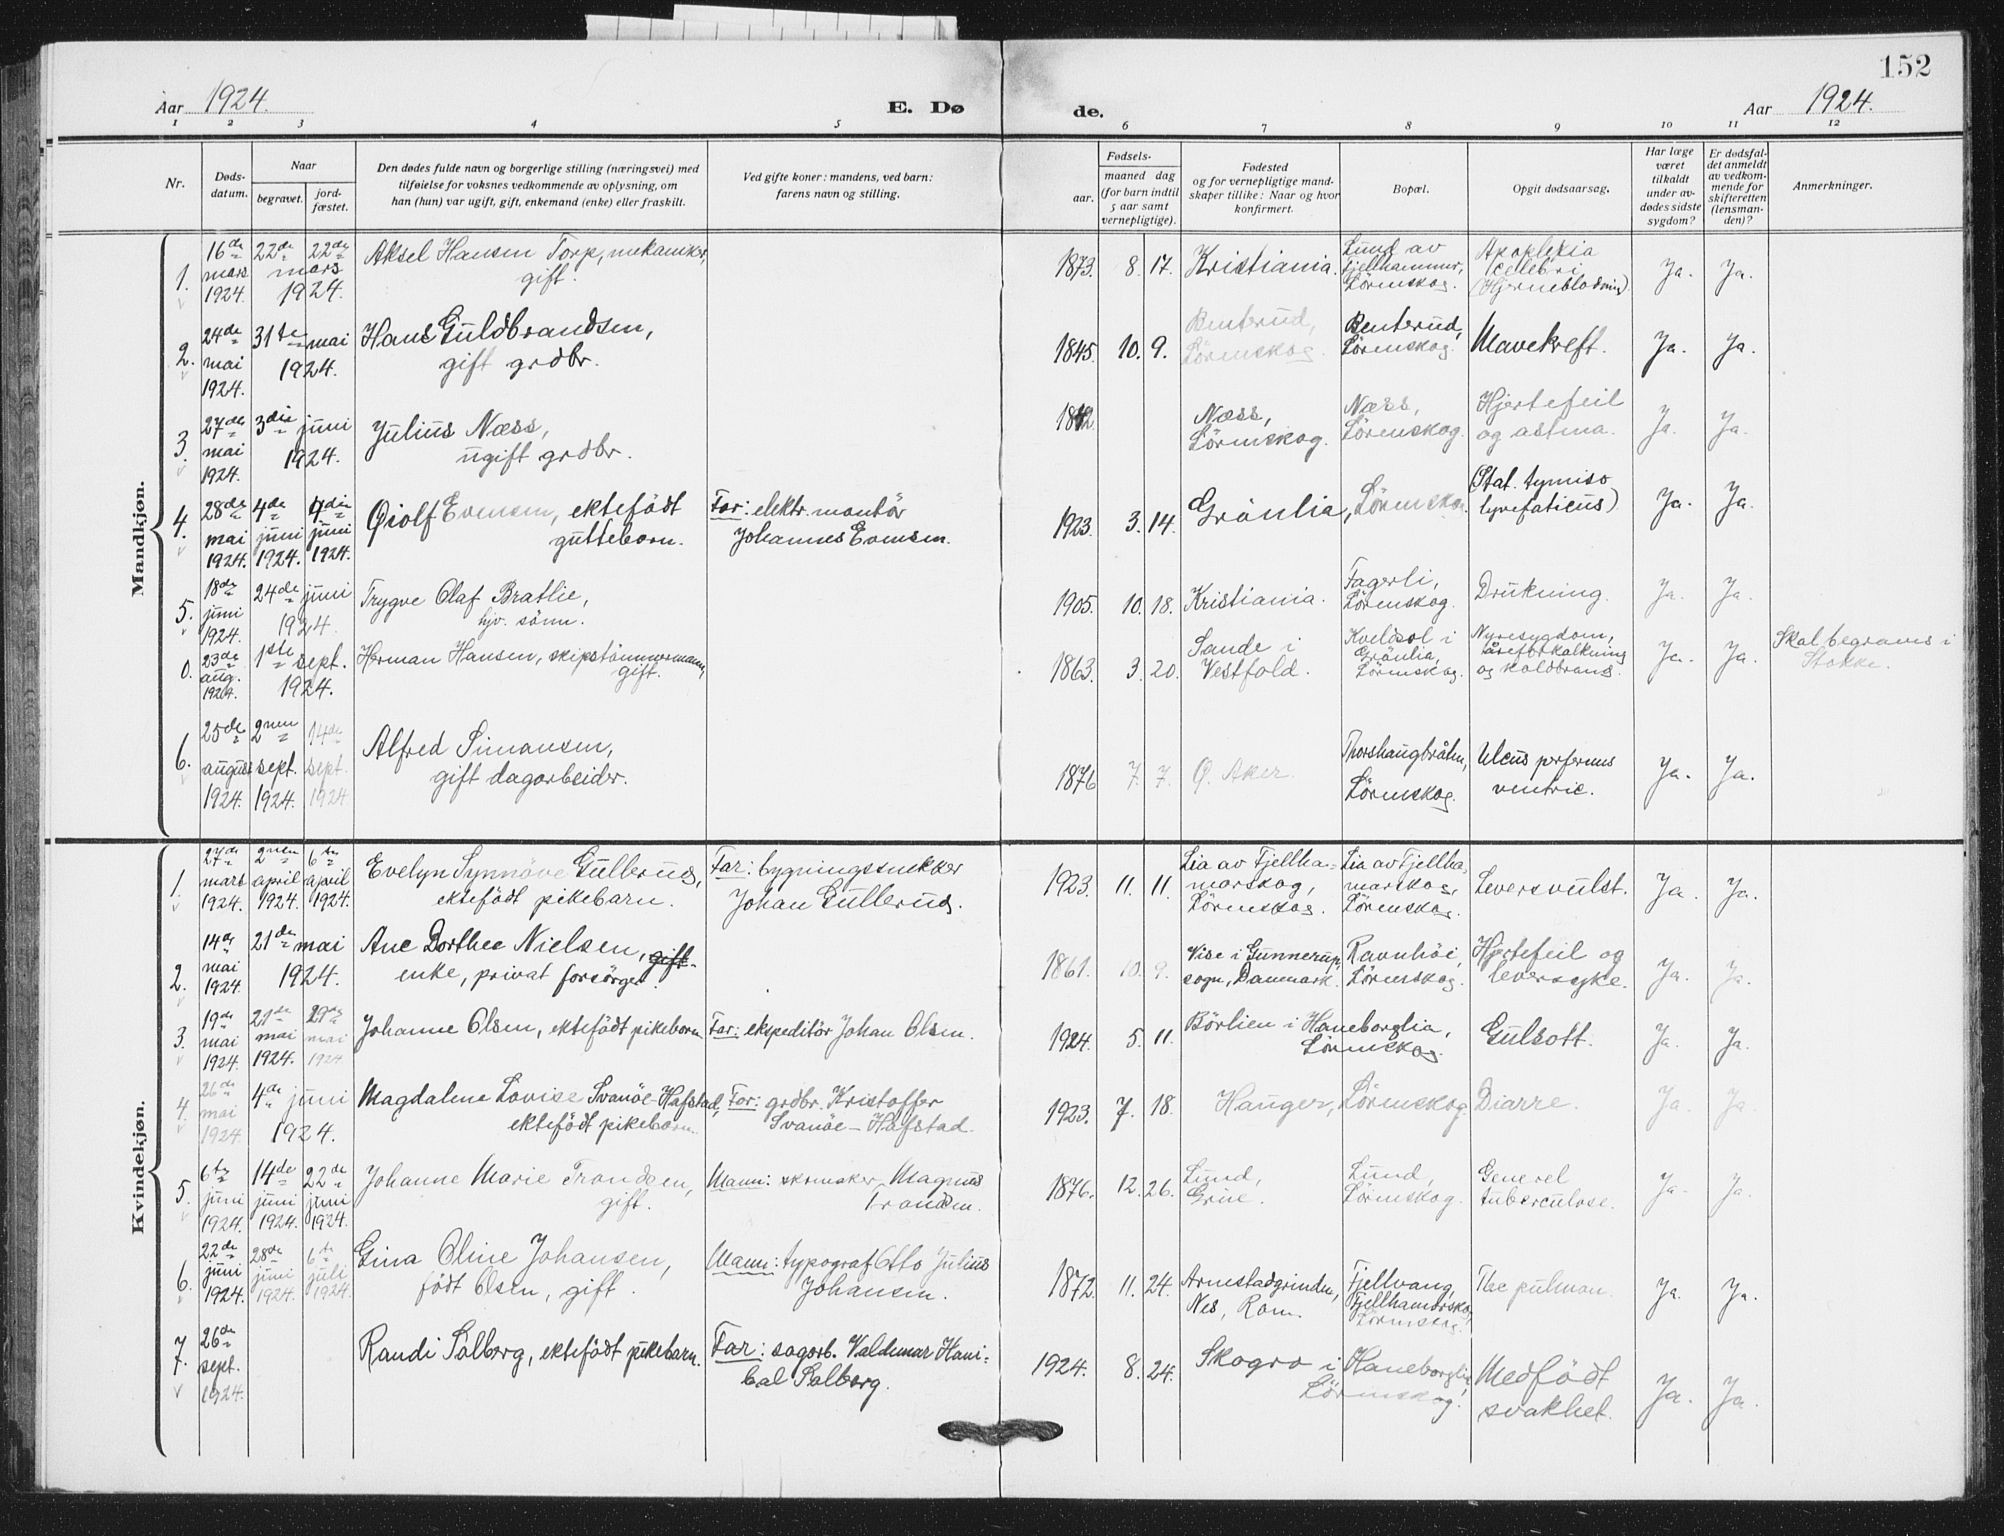 152
Aar 1924. E. Døde. Aar 1924.
1 2 3 4 5 6 7 8 9 10 11 12
Nr. Døds-datum. Naar begravet. jord-fæstet. Den dødes fulde navn og borgerlige stilling (næringsvei) med tilføielse for voksnes vedkommende av oplysning, om han (hun) var ugift, gift, enkemand (enke) eller fraskilt. Ved gifte koner: mandens, ved barn: farens navn og stilling. Fødsels- aar. maaned dag (for barn indtil 5 aar samt vernepligtige). Fødested og for vernepligtige mandskaper tillike: Naar og hvor konfirmert. Bopæl. Opgit dødsaarsag. Har læge været tilkaldt under avdødes sidste sygdom? Er dødsfaldet anmeldt av vedkommende for skifteretten (lensmanden)? Anmerkninger.
Mandkjøn.
1. 16de mars 1924. 22de 22de mars 1924. Aksel Hansen Torp, mekaniker, gift. 1873. 8. 17. Kristiania. Lund av Fjellhammer, Lörenskog. Apoplexia celebri (Hjerneblödning) Ja. Ja.
2. 24de mai 1924. 31te mai 1924. Hans Guldbrandsen, gift grdbr. 1845. 10. 9. Benterud, Lörenskog. Benterud, Lörenskog. Mavekreft. Ja. Ja.
3. 27de mai 1924. 3die juni 1924. Julius Næss, ugift grdbr. Næss, Lörenskog. Næss, Lörenskog. Hjertefeil og astma. Ja. Ja.
4. 28de mai 1924. 4de juni 1924. juni 1924. Eiolf Evensen, ektefödt guttebarn. Far: elektr. montör Johannes Evensen. 1923. 3. 14. Grönlia, Lörenskog. (Stat. tymiso lymfaticus) Ja. Ja.
5. 18de juni 1924. 24de juni 1924. Trygve Olaf Bratlie, hjv. sönn. 1905. 10. 18. Kristiania. Fagerli, Lörenskog. Drukning. Ja. Ja.
0. 23de aug. 1924. 1ste sept. 1924. Herman Hansen, skipstömmermann, gift. 1863. 3. 20. Sande i Vestfold. Kveldsol i Grönlia, Lörenskog. Nyresygdom, åreforkalkning og koldbrann. Ja. Ja. Skal begraves i Stokke.
6. 25de august 1924. 2nen sept. 1924. 14de sept. 1924 Alfred Simonsen, gift dagarbeider. 1876 7. 7. Ö. Aker. Thorshaugbråten, Lörenskog. Ulcus perforens ventric. Ja. Ja.
Kvindekjøn.
1. 27de mars 1924. 2nen april 1924. 6te april 1924. Evelyn Synnöve Gullerud, ektefödt pikebarn. Far: bygningssnekker Johan Gullerud. 1923. 11. 11. Lia av Fjellhamarskog, Lörenskog. Lia av Fjellhamarskog, Lörenskog. Leversvulst. Ja. Ja.
2. 14de mai 1924. 21de mai 1924. Ane Dorthee Nielsen, gift. enke, privat forsörget. 1861. 10. 9. Vise i Gunnerup sogn, Danmark. Ravnhöi, Lörenskog. Hjertefeil og leversyke. Ja. Ja.
3. 19de mai 1924. 21de mai 1924. mai 1924 Johanne Olsen, ektefödt pikebarn Far: ekspeditör Johan Olsen. 1924. 5. 11. Börlien i Haneborglia, Lörenskog. Gulsott. Ja. Ja.
4. 26de mai 1924 4de juni 1924. Magdalene Lovise Svanöe-Hafstad, ektefödt pikebarn. Far: grdbr. Kristoffer Svanöe-Hafstad. 1923. 7. 18. Hauger, Lörenskog. Diarre. Ja. Ja.
5. 6te juni 1924. 14de juni 1924. 22de juni 1924. Johanne Marie Trondsen, gift. Mann: skomaker Magnus Trondsen. 1876. 12. 26. Lund, Grue. Lund, Lörenskog. Generel tuberculose. Ja. Ja.
6. 22de juni 1924. 28de juni 1924. 6te juli 1924. Gina Oline Johansen, födt Olsen, gift. Mann: typograf Otto Julius Johansen. 1872. 11. 24. Arnestadgrinden, Nes, Rom. Fjellvang, Fjellhamarskog, Lörenskog. Tbc pulmon. Ja. Ja.
7. 26de sept. 1924. Randi Solberg, ektefödt pikebarn. Far: sagarb. Valdemar Hanibal Solberg. 1924. 8. 24. Skogro i Haneborglia, Lörenskog. Medfödt svakhet. Ja. Ja.